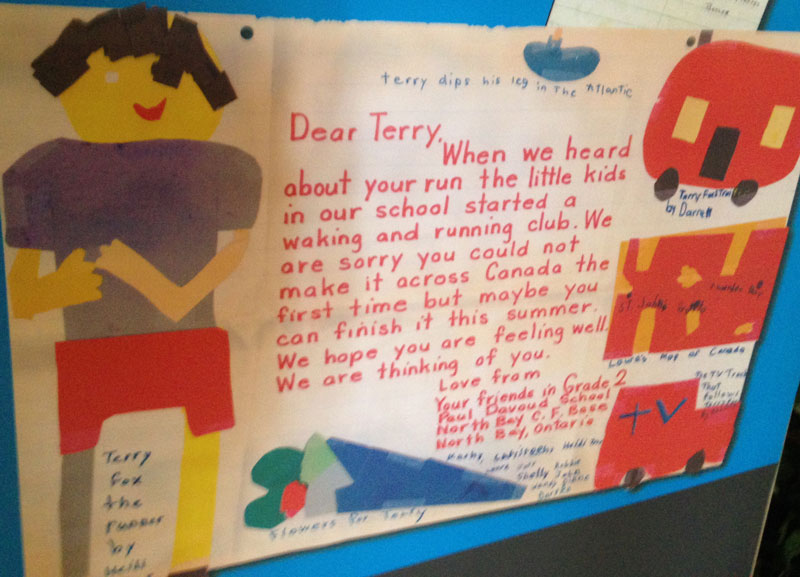 terry dips his leg in The Atlantic
Dear Terry,
When we heard
about your run the little kids
in our school started a
waking and running club. We
are sorry you could not
make it across Canada the
first time but maybe you
can finish it this summer.
We hope you are feeling well.
We are thinking of you.
Love from
Your friends in Grade 2
Paul Davoud School
North Bay C.F. Base
North Bay, Ontario
Terry Fox
by Darrell
Map of Canada
The TV Truck
That
Follows
TV
Shelly John
Flowers for Terry
Terry
Fox
the
runner
by